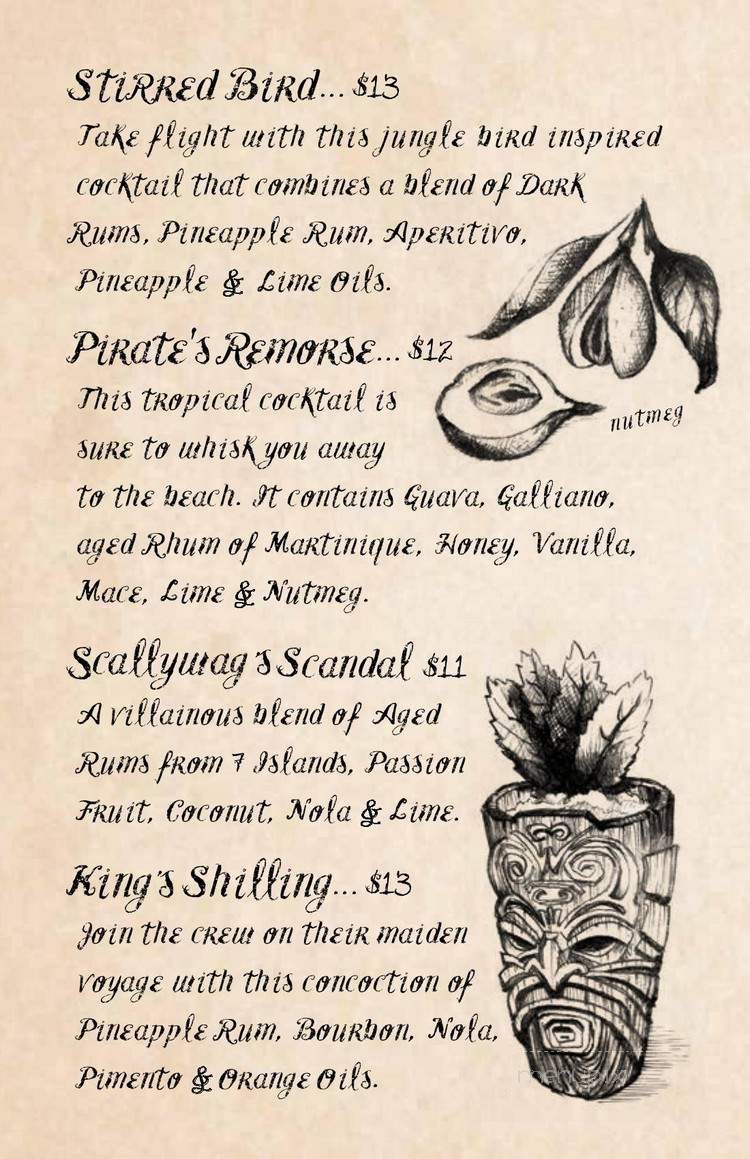 Stirred Bird... $13
Take flight with this jungle bird inspired
cocktail that combines a blend of Dark
Rums, Pineapple Rum, Aperitivo,
Pineapple & Lime Oils.
Pirate's Remorse... $12
This tropical cocktail is
sure to whisk you away
nutmeg
to the beach. It contains Guava, Galliano,
aged Rhum of Martinique, Honey, Vanilla,
Mace, Lime & Nutmeg.
Scallywag's Scandal $11
A villainous blend of Aged
Rums from 7 Islands, Passion
Fruit, Coconut, Nola & Lime.
King's Shilling... $13
Join the crew on their maiden
voyage with this concoction of
Pineapple Rum, Bourbon, Nola,
Pimento & Orange Oils.